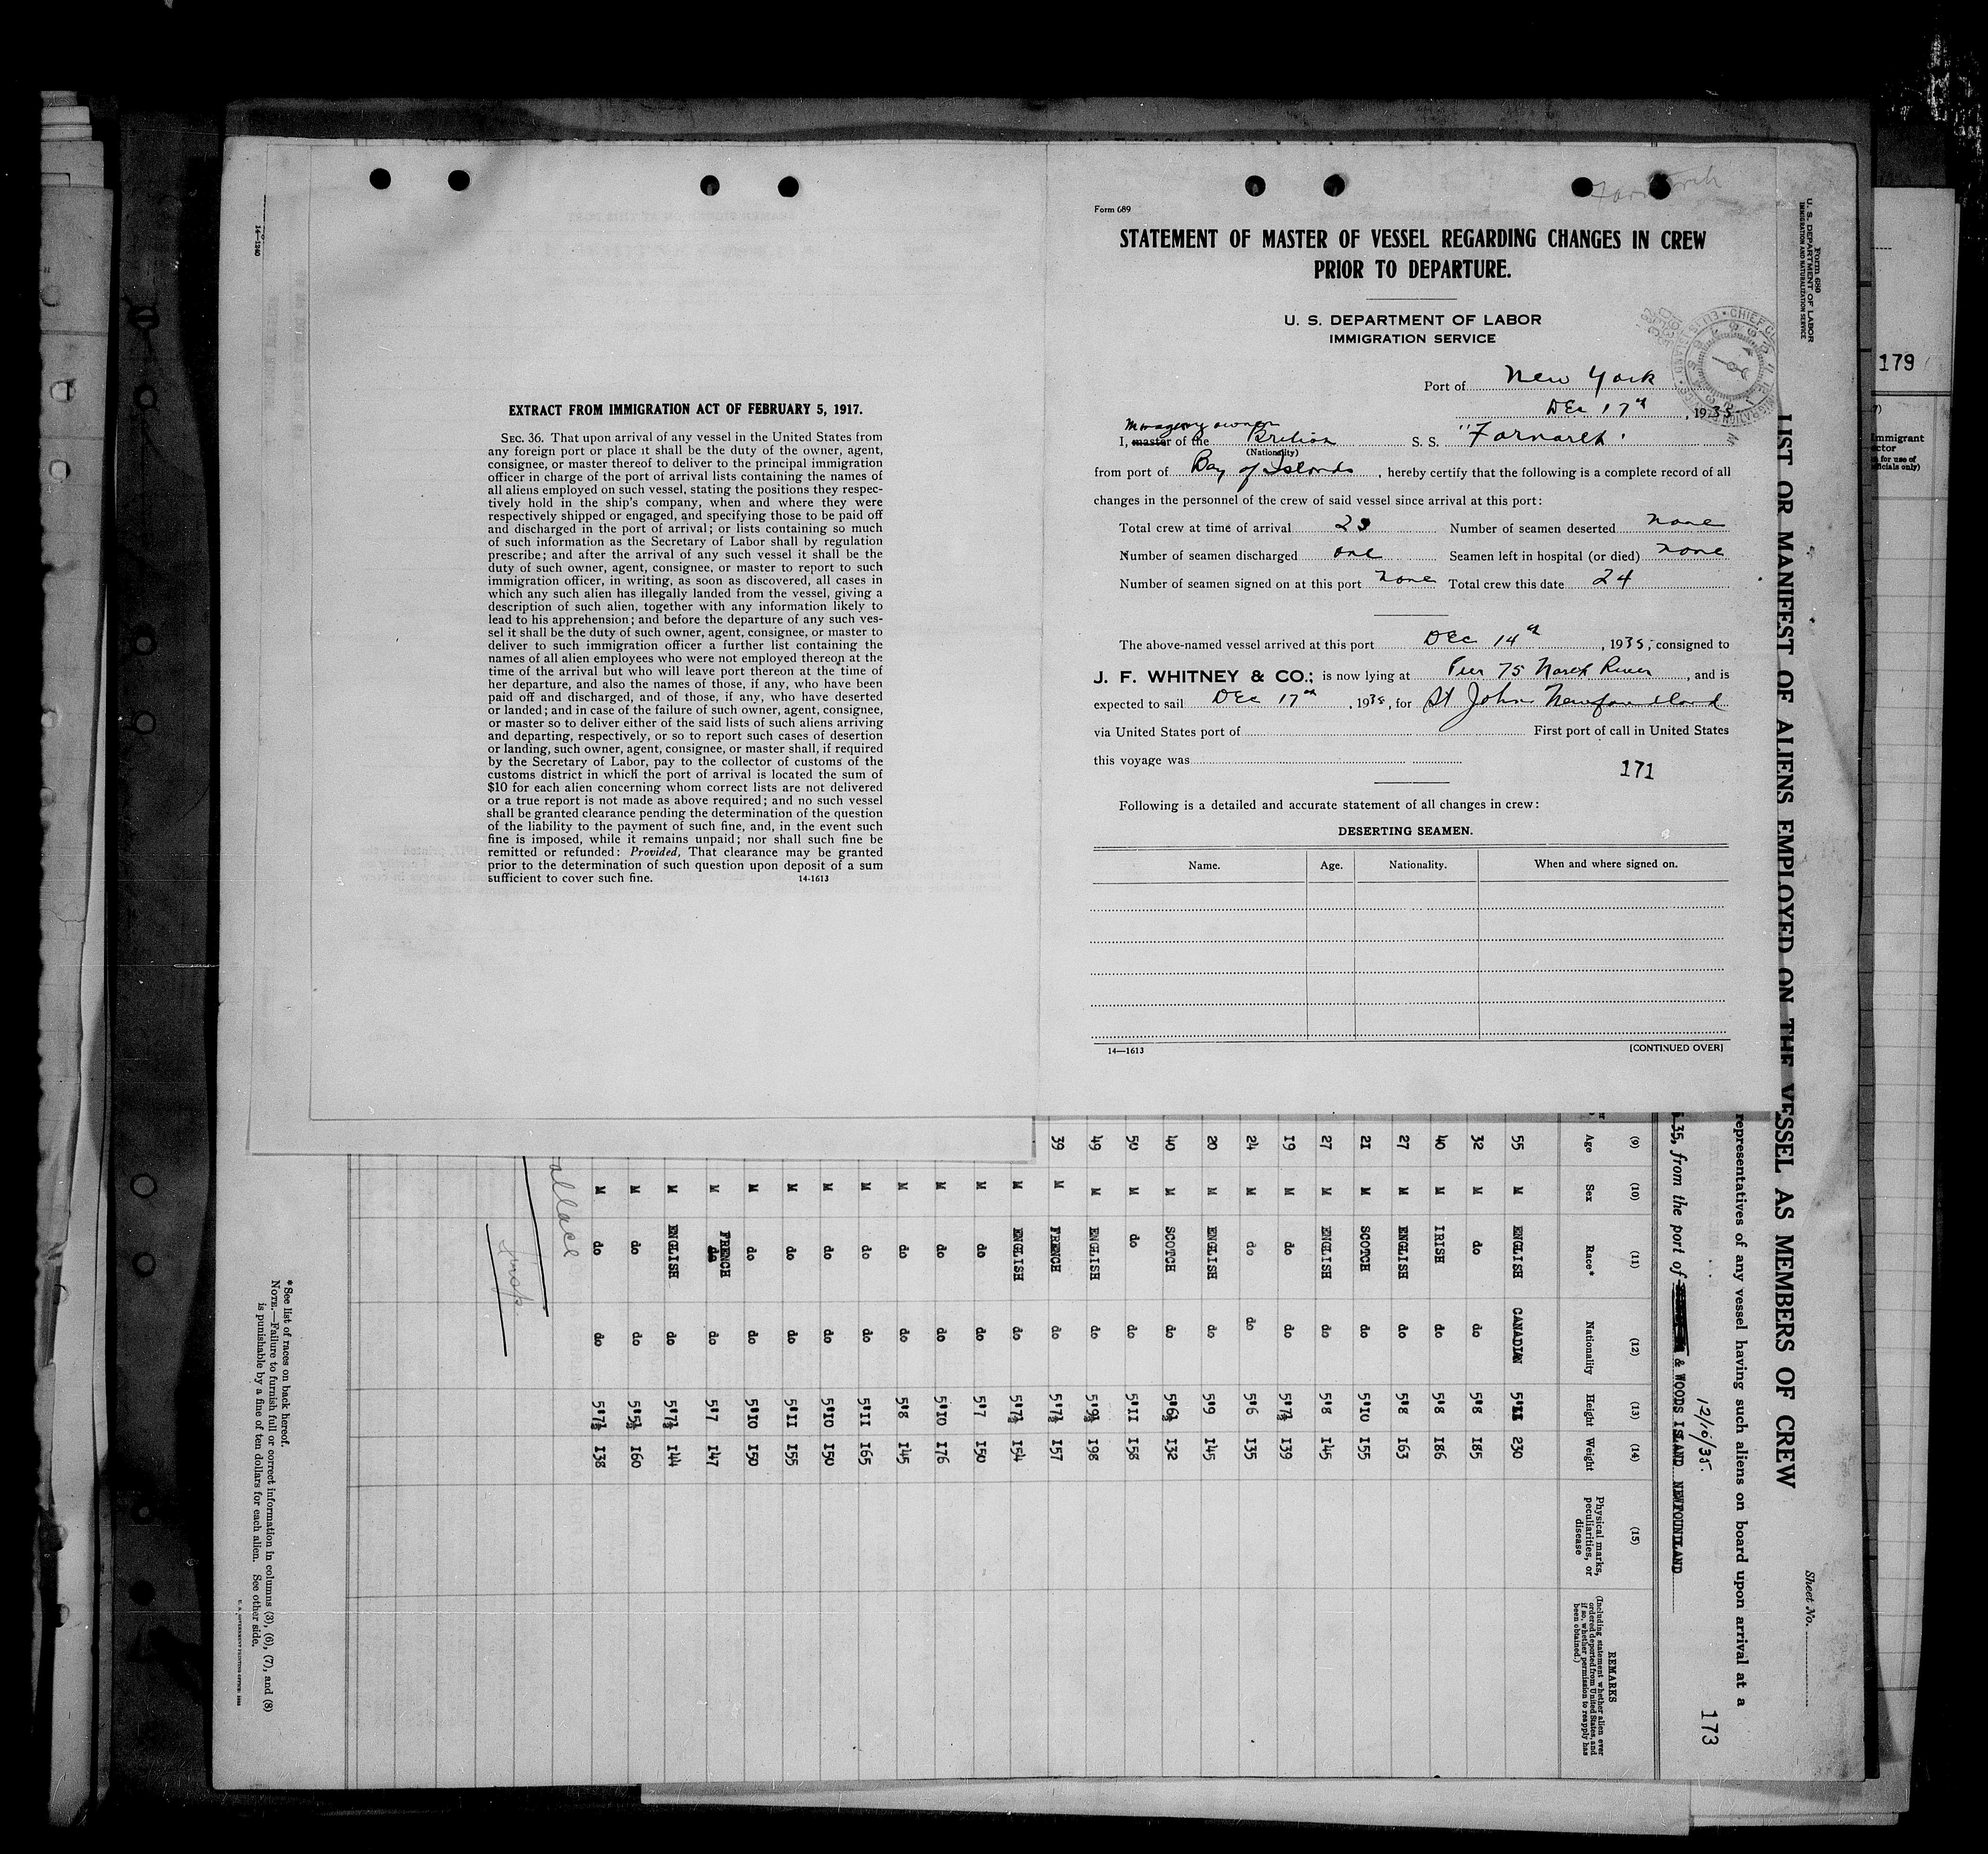 EXTRACT FROM IMMIGRATION ACT OF FEBRUARY 5, 1917.
SEC. 36. That upon arrival of any vessel in the United States from
any foreign port or place it shall be the duty of the owner, agent,
consignee, or master thereof to deliver to the principal immigration
officer in charge of the port of arrival lists containing the names of
all aliens employed on such vessel, stating the positions they respec-
tively hold in the ship's company, when and where they were
respectively shipped or engaged, and specifying those to be paid off
and discharged in the port of arrival; or lists containing so much
of such information as the Secretary of Labor shall by regulation
prescribe; and after the arrival of any such vessel it shall be the
duty of such owner, agent, consignee, or master to report to such
immigration officer, in writing, as soon as discovered, all cases in
which any such alien has illegally landed from the vessel, giving a
description of such alien, together with any information likely to
lead to his apprehension; and before the departure of any such ves-
sel it shall be the duty of such owner, agent, consignee, or master to
deliver to such immigration officer a further list containing the
names of all alien employees who were not employed thereon at the
time of the arrival but who will leave port thereon at the time of
her departure, and also the names of those, if any, who have been
paid off and discharged, and of those, if any, who have deserted
or landed; and in case of the failure of such owner, agent, consignee,
or master so to deliver either of the said lists of such aliens arriving
and departing, respectively, or so to report such cases of desertion
or landing, such owner, agent, consignee, or master shall, if required
by the Secretary of Labor, pay to the collector of customs of the
customs district in which the port of arrival is located the sum of
$10 for each alien concerning whom correct lists are not delivered
or a true report is not made as above required; and no such vessel
shall be granted clearance pending the determination of the question
of the liability to the payment of such fine, and, in the event such
fine is imposed, while it remains unpaid; nor shall such fine be
remitted or refunded: Provided, That clearance may be granted
prior to the determination of such question upon deposit of a sum
sufficient to cover such fine. 14-1613
14-1240
Form 689
STATEMENT OF MASTER OF VESSEL REGARDING CHANGES IN CREW
PRIOR TO DEPARTURE.
U. S. DEPARTMENT OF LABOR
IMMIGRATION SERVICE
Port of New York
Dec 17th, 1935
Managing owner
I, master of the British S. S. "Farnorth"
(Nationality)
from port of Bay of Islands, hereby certify that the following is a complete record of all
changes in the personnel of the crew of said vessel since arrival at this port:
Total crew at time of arrival 25 Number of seamen deserted none
Number of seamen discharged one Seamen left in hospital (or died) none
Number of seamen signed on at this port none Total crew this date 24
The above-named vessel arrived at this port Dec 14th, 1935, consigned to
J. F. WHITNEY & CO.; is now lying at Pier 75 North River, and is
expected to sail Dec 17th, 1935, for St Johns Newfoundland
via United States port of First port of call in United States
this voyage was
171
Following is a detailed and accurate statement of all changes in crew:
DESERTING SEAMEN.
Name. Age. Nationality. When and where signed on.
14—1613 [CONTINUED OVER]
179
Immigrant
Form 680
U. S. DEPARTMENT OF LABOR
IMMIGRATION AND NATURALIZATION SERVICE
Sheet No.
LIST OR MANIFEST OF ALIENS EMPLOYED ON THE VESSEL AS MEMBERS OF CREW
representatives of any vessel having such aliens on board upon arrival at a
173
12/10/35.
35, from the port of & WOODS ISLAND NEWFOUNDLAND
(9) (10) (11) (12) (13) (14) (15)
Age Sex Race* Nationality Height Weight Physical marks, peculiarities, or disease
REMARKS
(Including statement whether alien ever ordered deported from United States, and if so, whether permission to reapply has been obtained.)
55 M ENGLISH CANADIAN 5'11 230
32 M do do 5'8 185
40 M IRISH do 5'8 186
27 M ENGLISH do 5'8 163
21 M SCOTCH do 5'10 155
27 M ENGLISH do 5'8 145
19 M do do 5'7½ 139
24 M do do 5'6 135
20 M ENGLISH do 5'9 145
40 M SCOTCH do 5'6½ 132
50 M do do 5'11 158
49 M ENGLISH do 5'9½ 198
39 M FRENCH do 5'7½ 157
M ENGLISH do 5'7½ 154
M do do 5'7 150
M do do 5'10 176
M do do 5'8 145
M do do 5'11 165
M do do 5'10 150
M do do 5'11 155
M do do 5'10 150
M FRENCH do 5'7 147
M ENGLISH do 5'7½ 144
M do do 5'5½ 160
M do do 5'7½ 138
allace
Insp
*See list of races on back hereof.
NOTE.—Failure to furnish full or correct information in columns (3), (6), (7), and (8)
is punishable by a fine of ten dollars for each alien. See other side.